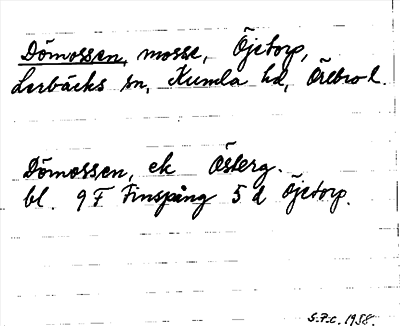 Dömossen, mosse, Öjetorp,
Lerbäcks sn, Kumla hd, Örebro l.
Dömossen, ek Österg.
bl. 9 F Finspång 5 d Öjetorp.
S.F.C. 1958.